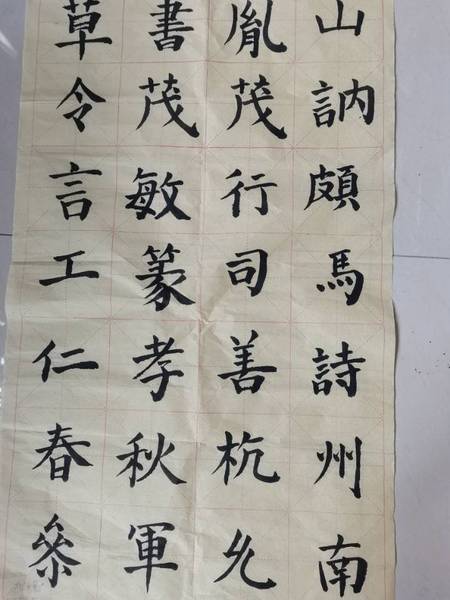 山訥頗馬詩州南
胤茂行司善杭允
書茂敏篆孝秋軍
草令言工仁春叅